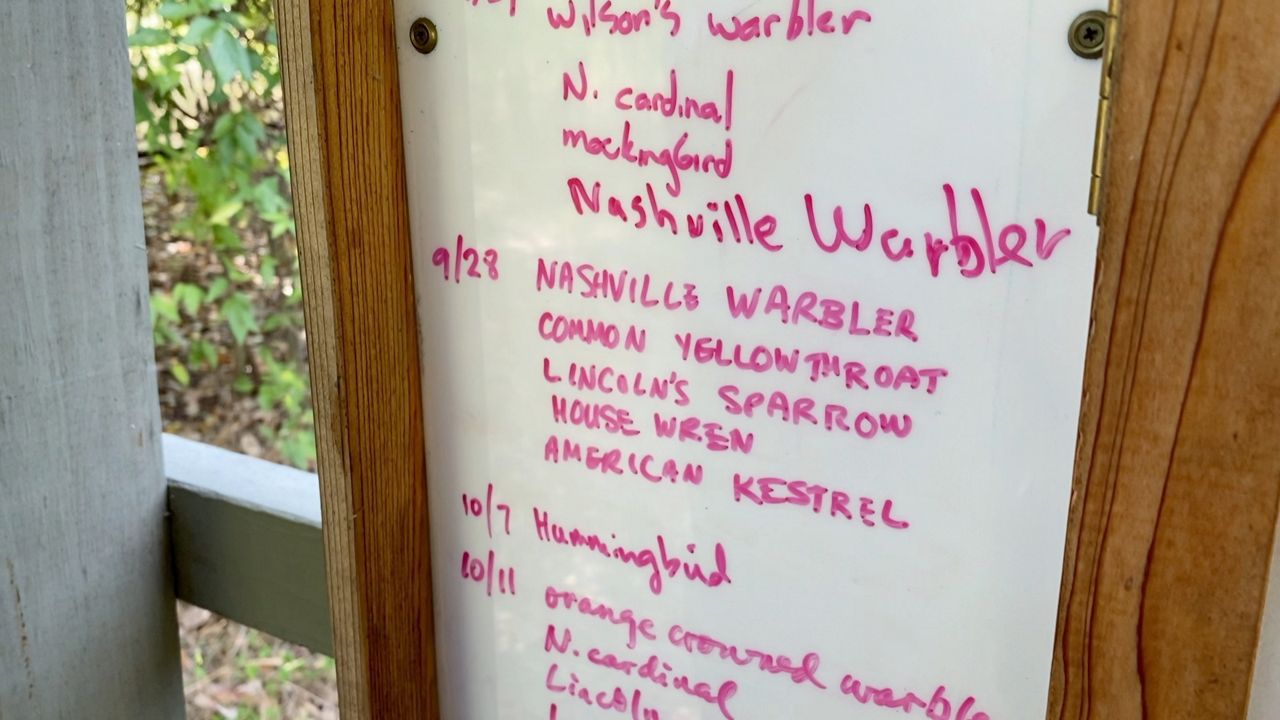 Wilson's warbler
N. cardinal
mockingbird
Nashville Warbler
9/28 NASHVILLE WARBLER
COMMON YELLOWTHROAT
LINCOLN'S SPARROW
HOUSE WREN
AMERICAN KESTREL
10/7 Hummingbird
10/11 orange crowned warble
N. cardinal
Lincoln